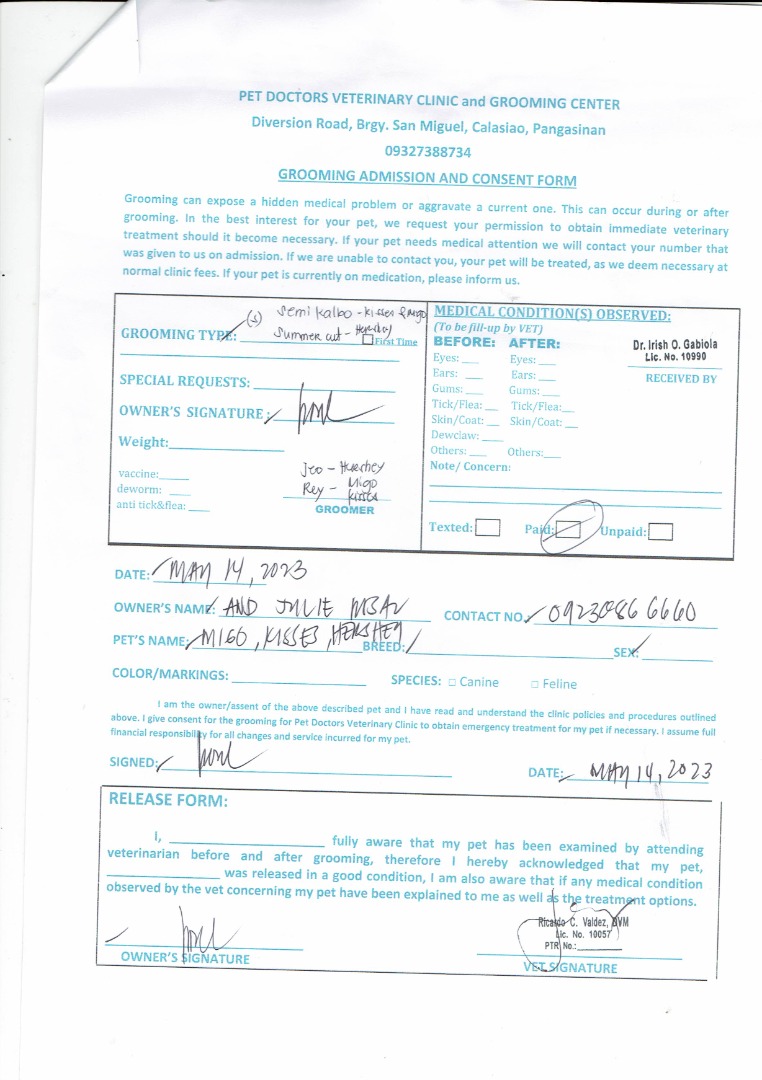 PET DOCTORS VETERINARY CLINIC and GROOMING CENTER
Diversion Road, Brgy. San Miguel, Calasiao, Pangasinan
09327388734
GROOMING ADMISSION AND CONSENT FORM
Grooming can expose a hidden medical problem or aggravate a current one. This can occur during or after
grooming. In the best interest for your pet, we request your permission to obtain immediate veterinary
treatment should it become necessary. If your pet needs medical attention we will contact your number that
was given to us on admission. If we are unable to contact you, your pet will be treated, as we deem necessary at
normal clinic fees. If your pet is currently on medication, please inform us.
(s) Semi kalbo - Kisses & Migo
GROOMING TYPE: Summer cut - Hershey
First Time
SPECIAL REQUESTS:
OWNER'S SIGNATURE:
Weight:
vaccine:
deworm:
anti tick&flea:
Jeo - Hershey
Rey - Migo
Kisses
GROOMER
MEDICAL CONDITION(S) OBSERVED:
(To be fill-up by VET)
BEFORE: AFTER:
Eyes: Eyes:
Ears: Ears:
Gums: Gums:
Tick/Flea: Tick/Flea:
Skin/Coat: Skin/Coat:
Dewclaw:
Others: Others:
Note/ Concern:
Dr. Irish O. Gabiola
Lic. No. 10990
RECEIVED BY
Texted: Paid: Unpaid:
DATE: MAY 14, 2023
OWNER'S NAME: AND JULIE CONTACT NO.
PET'S NAME: MIGO, KISSES, HERSHEY BREED: SEX:
COLOR/MARKINGS: SPECIES: Canine Feline
I am the owner/assent of the above described pet and I have read and understand the clinic policies and procedures outlined
above. I give consent for the grooming for Pet Doctors Veterinary Clinic to obtain emergency treatment for my pet if necessary. I assume full
financial responsibility for all changes and service incurred for my pet.
SIGNED: DATE: MAY 14, 2023
RELEASE FORM:
I, fully aware that my pet has been examined by attending
veterinarian before and after grooming, therefore I hereby acknowledged that my pet,
was released in a good condition, I am also aware that if any medical condition
observed by the vet concerning my pet have been explained to me as well as the treatment options.
Ricardo C. Valdez, DVM
Lic. No. 10057
PTR No.:
OWNER'S SIGNATURE
VET SIGNATURE